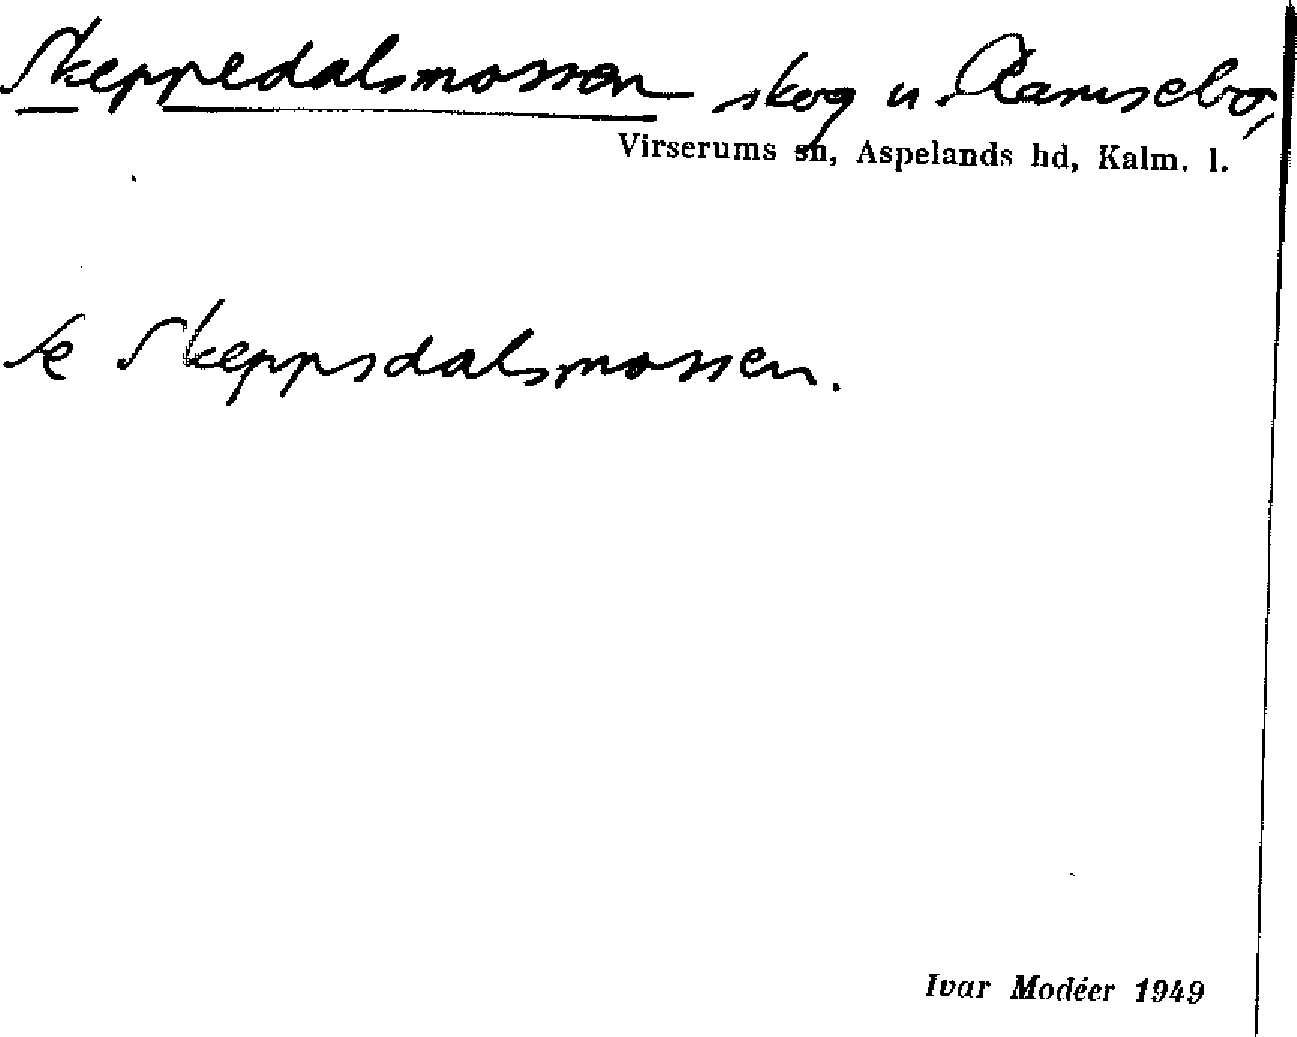 Skeppedalsmossen skog u. Ramsebo,
Virserums sn, Aspelands hd, Kalm. l.
se Skeppsdalsmossen.
Ivar Modéer 1949